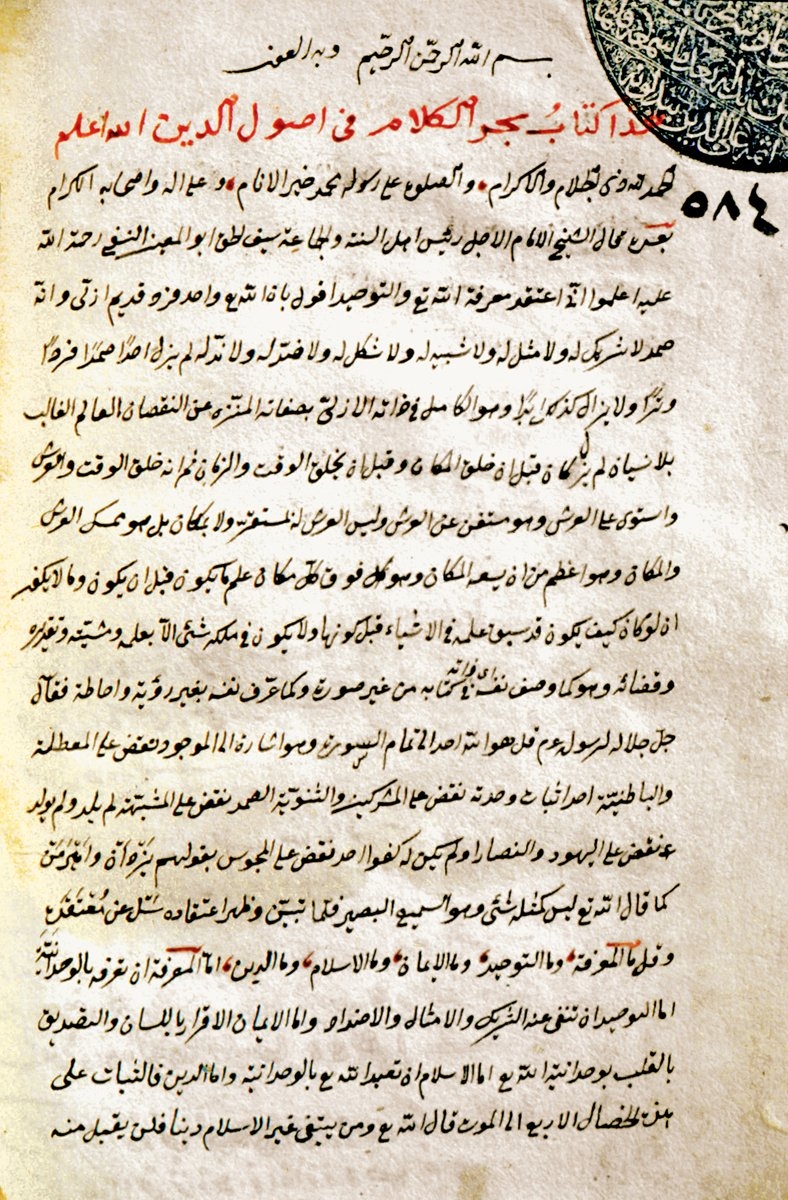 بسم الله الرحمن الرحيم وبه العون
هذا كتاب بحر الكلام في اصول الدين الله اعلم
الحمد لله ذي الجلام والاكرام والصلوة على رسوله محمد خير الانام وعلى اله واصحابه الكرام
٥٨٤
بعده قال الشيخ الامام الاجل رئيس اهل السنة والجماعة سيف الحق ابو المعين النسفي رحمة الله
عليه اعلموا اني اعتقد معرفة الله تع والتوحيد اقول بان الله تع واحد فرد قديم ازلي وانه
صمد لا شريك له ولا مثل له ولا شبيه له ولا شكل له ولا ضد له ولا ند له لم يزل احدا صمدا فردا
وترا ولا يزال كذلك ابدا وهو الكامل في ذاته الازلي بصفاته المنزه عن النقصان العالم الغالب
بلا نسيان لم يزل كان قبل ان خلق المكان وقبل ان يخلق الوقت والزمان ثم انه خلق الوقت والعرش
واستوى على العرش وهو مستغن عن العرش وليس العرش له لمستقر ولا بمكان بل هو ممسك العرش
والمكان وهو اعظم من ان يسعه المكان وهو فوق كل مكان علم ما يكون قبل ان يكون وما لا يكون
ان لو كان كيف يكون قد سبق علمه في الاشياء قبل كونها ولا يكون في ملكه شئ الا بعلمه ومشيته وتقديره
وقضائه وهو كما وصف نفسه في كتابه اي ذاته من غير صورة وكما عرف نفسه بغير رؤية واحاطة فقال
جل جلاله لرسوله عم قل هو الله احد الى تمام السورة وهو اشارة الى الموجود نقض على المعطلة
والباطنية احد اثبات وحدته نقض على المشركين والثنوية الصمد نقض على المشبهة لم يلد ولم يولد
نقض على اليهود والنصارا ولم يكن له كفوا احد نقض على المجوس بقولهم يزدان واهرمن
كما قال الله تع ليس كمثله شئ وهو السميع البصير فلما تبين وظهر اعتقاده سئل عن معتقده
وقل ما المعرفة وما التوحيد وما الايمان وما الاسلام وما الدين اما المعرفة ان تعرفه بالوحدانية
اما التوحيد ان تنفى عنه الشريك والامثال والاضداد واما الايمان الاقرار باللسان والتصديق
بالقلب بوحدانية الله تع اما الاسلام ان تعبد الله تع بالوحدانية واما الدين فالثبات على
هذه الخصال الاربع الى الموت قال الله تع ومن يبتغ غير الاسلام دينا فلن يقبل منه